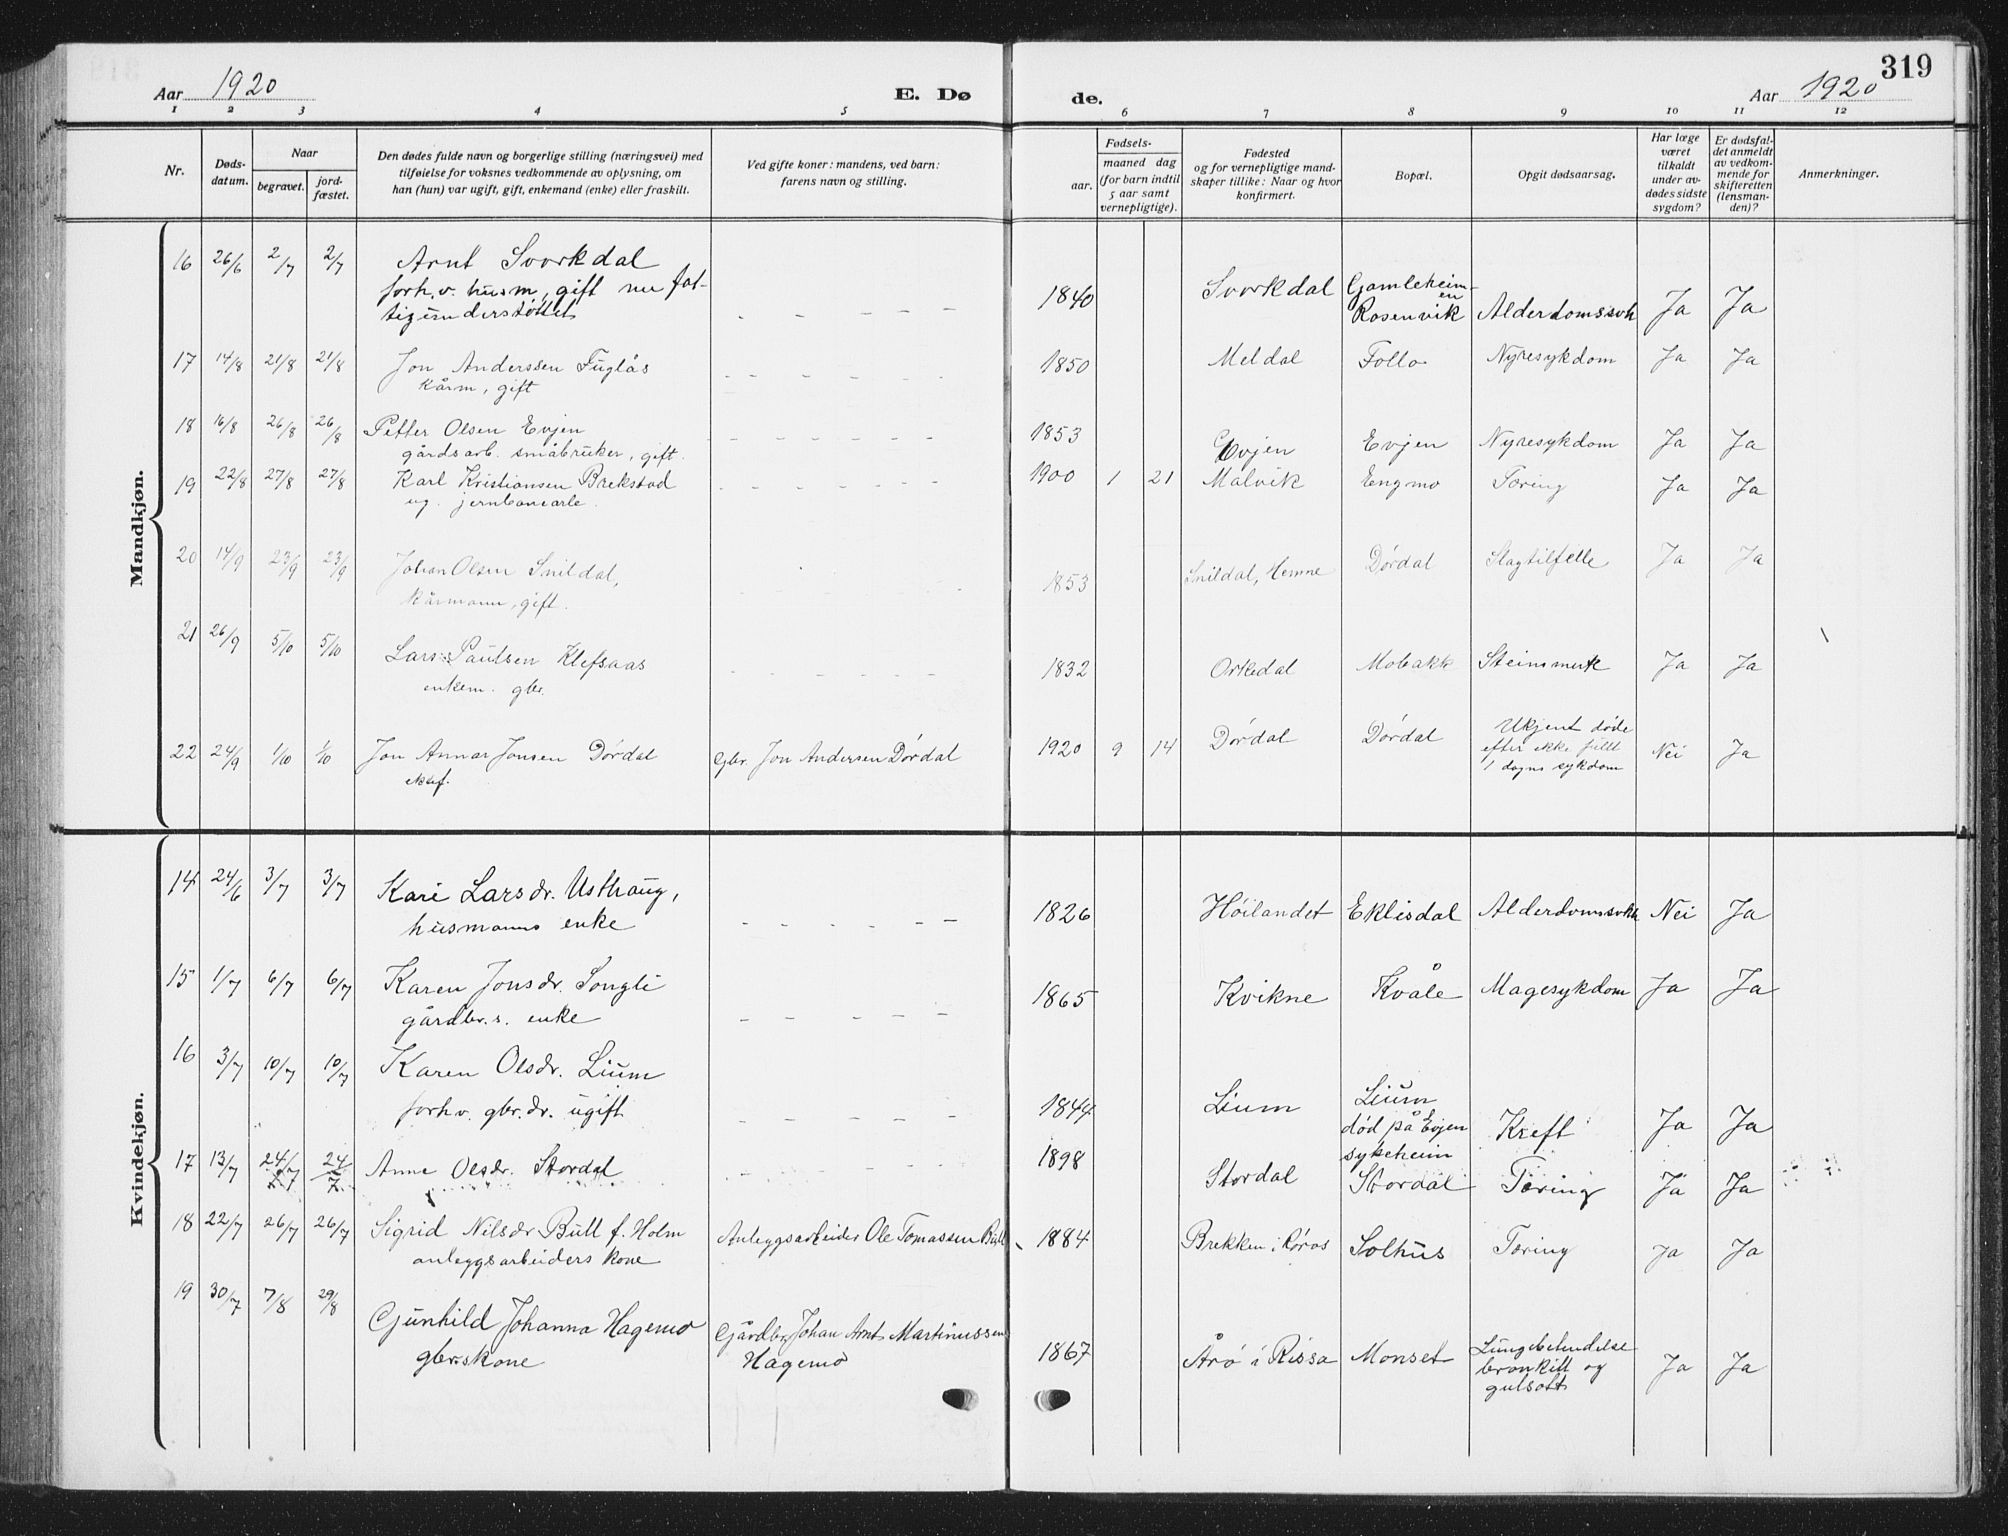 319
Aar 1920
E. Dø
de.
Aar 1920
1 2 3 4 5 6 7 8 9 10 11 12
Nr.
Døds-
datum.
Naar
begravet.
jord-
fæstet.
Den dødes fulde navn og borgerlige stilling (næringsvei) med
tilføielse for voksnes vedkommende av oplysning, om
han (hun) var ugift, gift, enkemand (enke) eller fraskilt.
Ved gifte koner: mandens, ved barn:
farens navn og stilling.
Fødsels-
aar.
maaned dag
(for barn indtil
5 aar samt
vernepligtige).
Fødested
og for vernepligtige mand-
skaper tillike: Naar og hvor
konfirmert.
Bopæl.
Opgit dødsaarsag.
Har læge
været
tilkaldt
under av-
dødes sidste
sygdom?
Er dødsfal-
det anmeldt
av vedkom-
mende for
skifteretten
(lensman-
den)?
Anmerkninger.
Mandkjøn.
16 26/6 2/7 2/7 Arnt Svorkdal
forh. v. husm, gift nu fat-
tigunderstøttet
1840 Svorkdal Gamleheim-
en
Rosenvik Alderdomssvk Ja Ja
17 14/8 21/8 21/8 Jon Anderssen Fuglås
kårm, gift
1850 Meldal Follo Nyresykdom Ja Ja
18 16/8 26/8 26/8 Petter Olsen Evjen
gårdsarb. småbruker, gift.
1853 Evjen Evjen Nyresykdom Ja Ja
19 22/8 27/8 27/8 Karl Kristiansen Brekstad
ug. jernbanearb.
1900 1 21 Malvik Engmo Tæring Ja Ja
20 14/9 23/9 23/9 Johan Olsen Snildal,
kårmann, gift.
1853 Snildal, Hemne Dørdal Slagtilfelle Ja Ja
21 26/9 5/10 5/10 Lars Paulsen Klefsaas
enkem. gbr.
1832 Orkedal Mobakk Ja Ja
22 24/9 1/10 1/10 Jon Annar Jonsen Dørdal
ektef.
Gbr. Jon Andersen Dørdal
1920 9 14 Dørdal Dørdal Ukjent døde
efter ikke fullt
1 dagns sykdom Nei Ja
Kvindekjøn.
14 24/6 3/7 3/7 Kari Larsdr. Usthaug,
husmanns enke
1826 Høilandet Eklisdal Alderdomssvkh Nei Ja
15 1/7 6/7 6/7 Karen Jonsdr. Songli
gårdbr.s. enke
1865 Kvikne Kvåle Magesykdom Ja Ja
16 3/7 10/7 10/7 Karen Olsdr. Lium
forh v. gbr. dr. ugift
1844 Lium Lium
død på Evjen
sykeheim Kreft Ja Ja
17 13/7 24/7 24/7 Anne Olsdr. Stordal
1898 Stordal Stordal Tæring Ja Ja
18 22/7 26/7 26/7 Sigrid Nilsdr Bull f. Holm
anleggsarbeiders kone
Anleggsarbeider Ole Tomassen Bull
1884 Brekken i Røros Solhus Tæring Ja Ja
19 30/7 7/8 29/8 Gunhild Johanna Hagemo
gbr.skone
Gårdbr. Johan Arnt Martinussen
Hagemo
1867 Årø i Rissa Monset Lungebetendelse
bronkitt og
gulsott Ja Ja